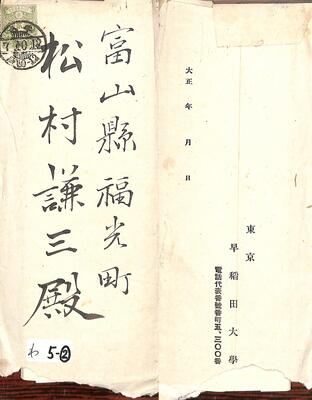 富山縣福光町
松村謙三殿
わ 5-②
大正 年 月 日
東京
早稻田大學
電話代表番號番町五、三〇〇番